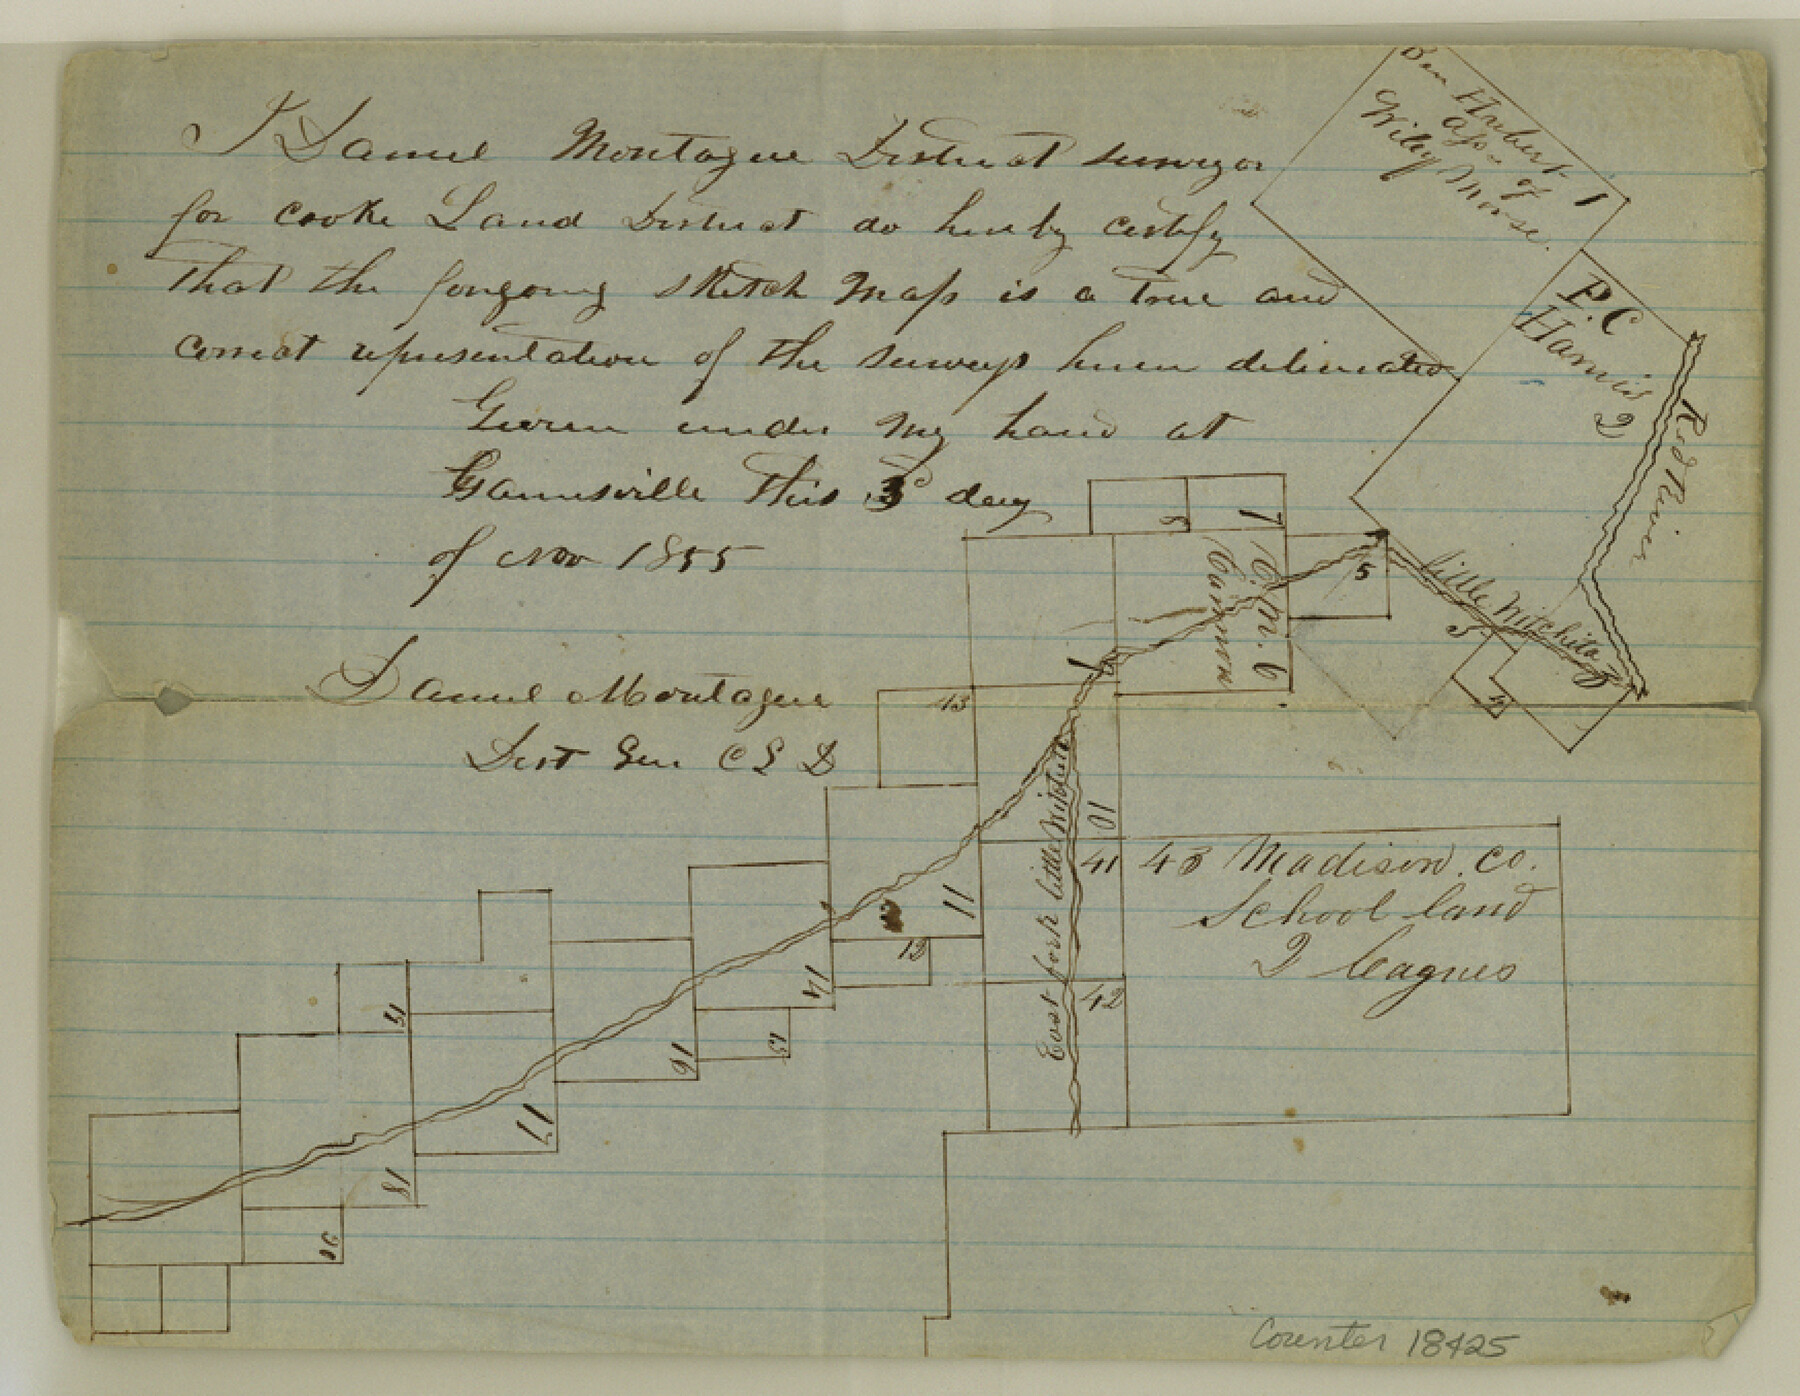 I Daniel Montague District surveyor
for Cooke Land District do hereby certify
that the forgoing sketch map is a true and
correct representation of the surveys herein delineated
Given under my hand at
Gainesville this 3d day
of Nov 1855
Daniel Montague
Dist Sur C L D
Ben Hubert 1
Wiley Morse.
P. C
Harris
2
Red River
little Witchita
3
4
5
5
7
8
C. M. 6
Cannon
9
13
10
East fork little Witchita
41
43 Madison. Co.
School land
2 leagues
11
12
42
14
15
16
17
19
18
20
Counter 18425